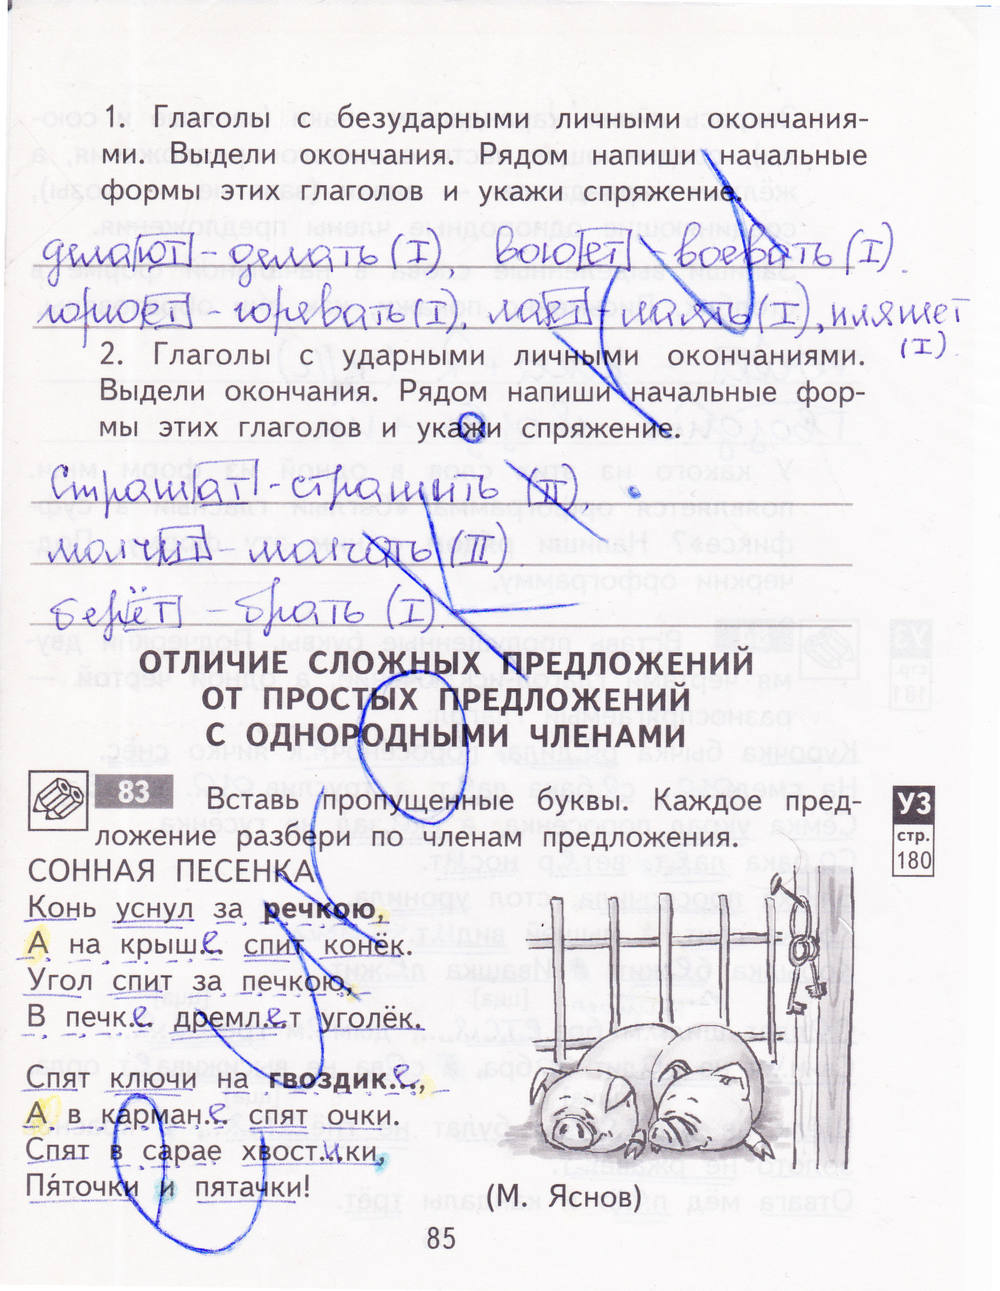 1. Глаголы с безударными личными окончания-
ми. Выдели окончания. Рядом напиши начальные
формы этих глаголов и укажи спряжение.
делают - делать (I) воюет - воевать (I).
горюет - горевать (I), (I), пляшет
(I)
2. Глаголы с ударными личными окончаниями.
Выдели окончания. Рядом напиши начальные фор-
мы этих глаголов и укажи спряжение.
Страшат - страшить (II)
молчит - молчать (II).
берёт - брать (I).
ОТЛИЧИЕ СЛОЖНЫХ ПРЕДЛОЖЕНИЙ
ОТ ПРОСТЫХ ПРЕДЛОЖЕНИЙ
С ОДНОРОДНЫМИ ЧЛЕНАМИ
83 Вставь пропущенные буквы. Каждое пред-
ложение разбери по членам предложения.
УЗ
стр.
180
СОННАЯ ПЕСЕНКА
Конь уснул за речкою,
А на крыше спит конёк.
Угол спит за печкою,
В печк.е. дремл.е.т уголёк.
Спят ключи на гвоздик.е.,
А в карман.е. спят очки.
Спят в сарае хвост.и.ки,
Пяточки и пятачки!
(М. Яснов)
85